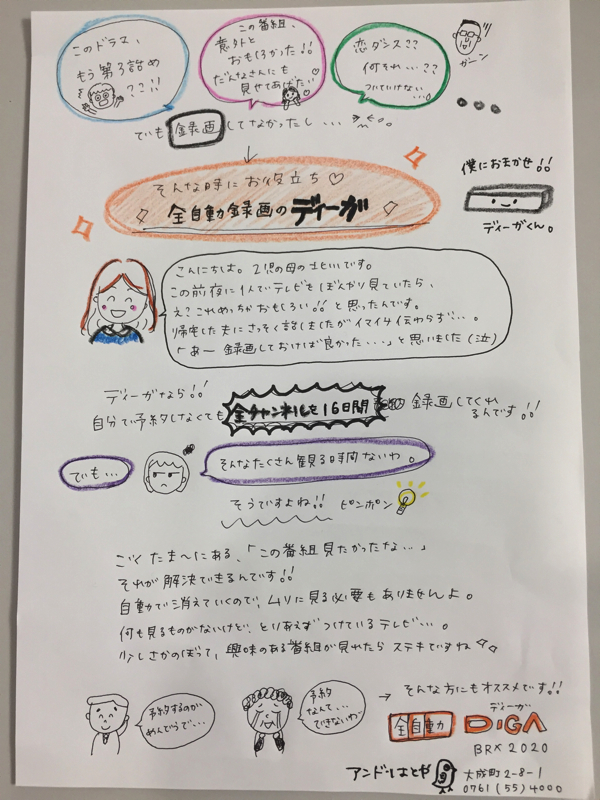 このドラマ、
もう第3話め
??!!
この番組、
意外と
おもしろかった!!
だんなさんにも
見せてあげたい♡
恋ダンス??
何それ...??
ついていけない...
ガーン
でも 録画 してなかったし...
そんな時にお役立ち♡
全自動録画のディーガ
僕におまかせ!!
ディーガくん。
こんにちは。2児の母の です。
この前夜に1人でテレビをぼんやり見ていたら、
え?これめっちゃおもしろい!!と思ったんです。
帰宅した夫にさっそく話しましたがイマイチ伝わらず...。
「あー 録画しておけば良かった...」と思いました(泣)
ディーガなら!!
自分で予約しなくても 全チャンネルを16日間 録画してくれ
るんです!!
でも...
そんなたくさん観る時間ないわ。
そうですよね!! ピンポン
ごくたま〜にある、「この番組見たかったな...」
それが解決できるんです!!
自動で消えていくので、ムリに見る必要もありませんよ。
何も見るものがないけど、とりあえずつけているテレビ...。
少しさかのぼって、興味のある番組が見れたらステキですね
予約するのが
めんどうで...
予約
なんて...
できないわ
→ そんな方にもオススメです!!
ディーガ
全自動 DiGA
BRX 2020
アンドールはとや
大成町2-8-1
0761(55)4000